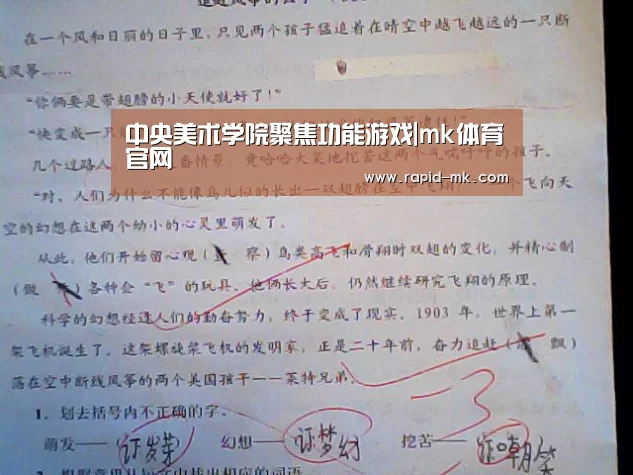 在一个风和日丽的日子里，只见两个孩子猛追着在晴空中越飞越远的一只断
线风筝……
“你俩要是带翅膀的小天使就好了！”
“快变成一只
中央美术学院聚焦功能游戏|mk体育
官网
www.rapid-mk.com
几个过路人，
番情景，竟哈哈大笑地挖苦这两个气喘吁吁的孩子。
“对，人们为什么不能像鸟儿似的长出一双翅膀在空中飞翔？”一个飞向天
空的幻想在这两个幼小的心灵里萌发了。
从此，他们开始留心观（ 察）鸟类高飞和滑翔时双翅的变化，并精心制
（做 ）各种会“飞”的玩具。他俩长大后，仍然继续研究飞翔的原理。
科学的幻想经过人们的勤奋努力，终于变成了现实。1903 年，世界上第一
架飞机诞生了。这架螺旋桨飞机的发明家，正是二十年前，奋力追赶（ 飘）
落在空中断线风筝的两个美国孩子——莱特兄弟。
-3
1. 划去括号内不正确的字。
萌发——证发芽 幻想——证梦幻 挖苦——证嘲笑
2. 根据意思从短文中找出相应的词语